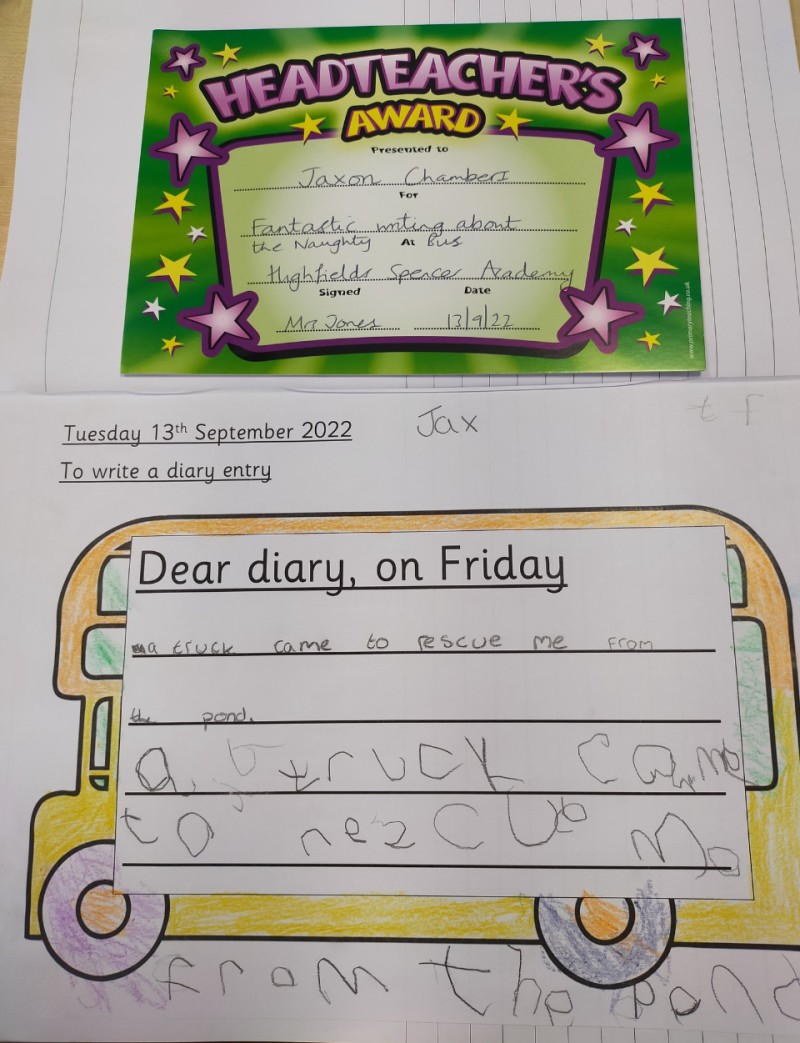 HEADTEACHER'S
AWARD
Presented to
Jaxon Chambers
For
Fantastic writing about
the Naughty Bus
At
Highfields Spencer Academy
Signed Date
Mrs Jones 13/9/22
www.primaryteaching.co.uk
Tuesday 13th September 2022
Jax
t f
To write a diary entry
Dear diary, on Friday
a truck came to rescue me from
the pond.
a truck came
to rescue me
from the pond